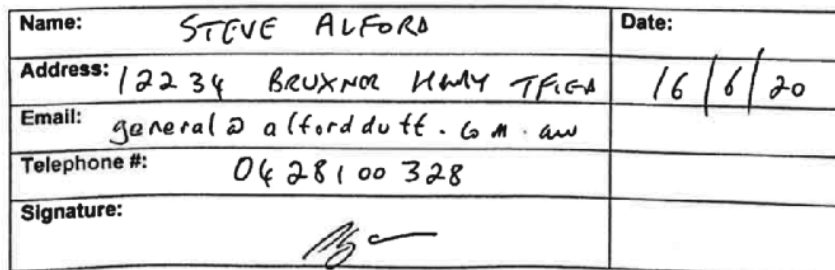 Name: STEVE ALFORD Date:
Address: 12234 BRUXNER HWAY TFIELD 16/6/20
Email: general@alfordduff.com.au
Telephone #: 0428100328
Signature: